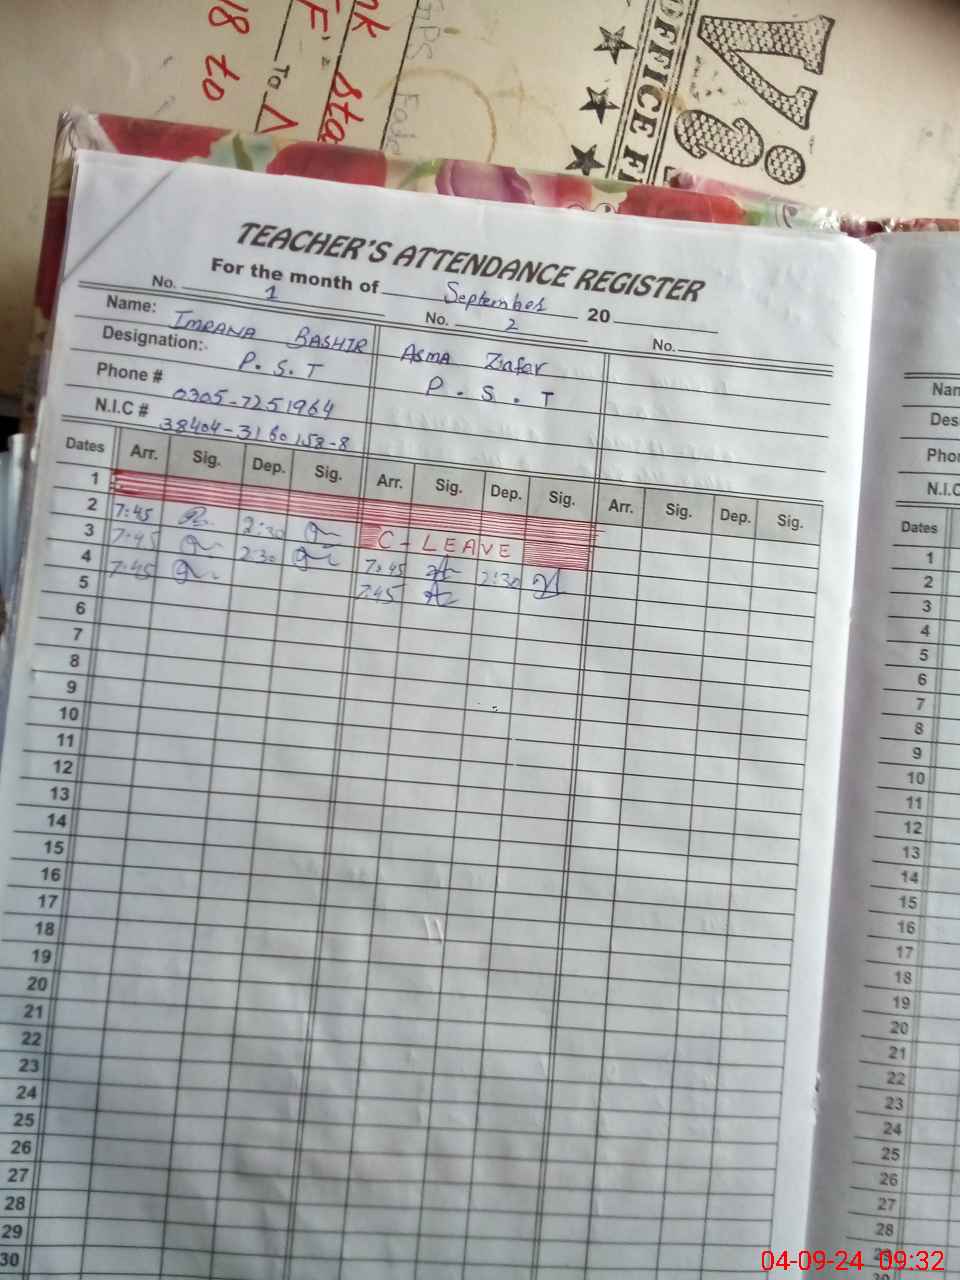 18 to
F: To A
nk sta
GPS Fade
OFFICE FI
Vi
TEACHER'S ATTENDANCE REGISTER
For the month of September 20
No. 1 No. 2 No.
Name: IMRANA BASHIR ASMA Zafar
Designation:- P.S.T P.S.T
Phone # 0305-7251964
N.I.C # 38404-3160158-8
Dates Arr. Sig. Dep. Sig. Arr. Sig. Dep. Sig. Arr. Sig. Dep. Sig.
1
2 7:45 2:30 C-LEAVE
3 7:45 2:30 7:45 2:30
4 7:45 7:45
5
6
7
8
9
10
11
12
13
14
15
16
17
18
19
20
21
22
23
24
25
26
27
28
29
30
Nam
Des
Pho
N.I.C
Dates
1
2
3
4
5
6
7
8
9
10
11
12
13
14
15
16
17
18
19
20
21
22
23
24
25
26
27
28
29
04-09-24 09:32